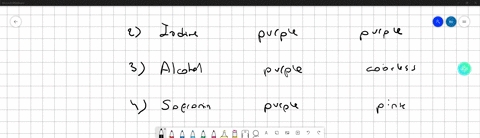 2) Iodine purple purple
3) Alcohol purple coorless
4) Safranin purple pink